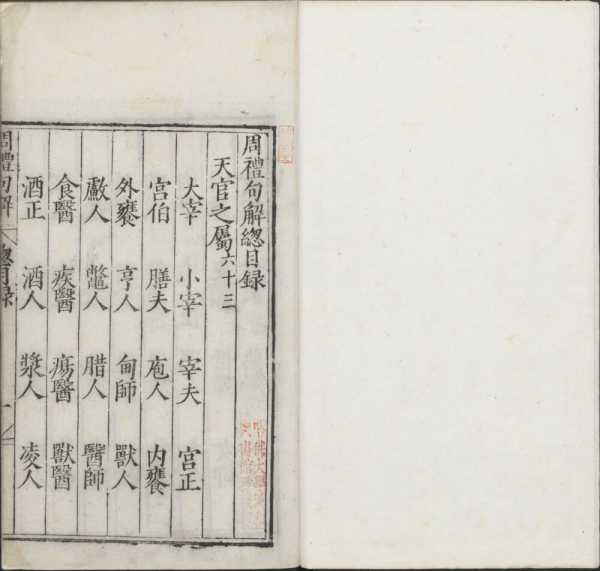 周禮句解總目録
天官之屬六十三
大宰 小宰 宰夫 宫正
宫伯 膳夫 庖人 内饔
外饔 亨人 甸師 獸人
䱷人 鼈人 腊人 醫師
食醫 疾醫 瘍醫 獸醫
酒正 酒人 漿人 凌人
周禮句解 總目録 一